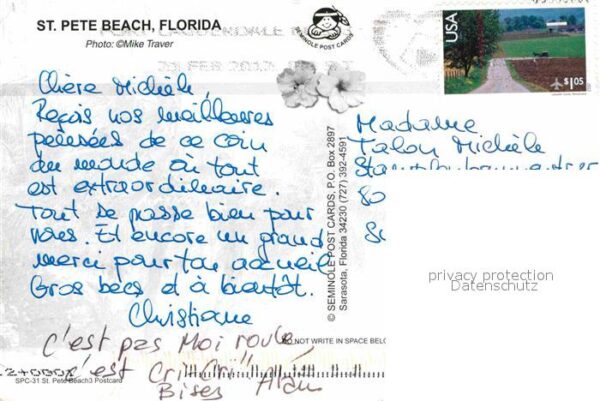 ST. PETE BEACH, FLORIDA
Photo: ©Mike Traver
SEMINOLE POST CARDS
USA
$1.05
Chère Michèle,
Reçois nos meilleures
pensées de ce coin
du monde où tout
est extraordinaire.
Tout se passe bien pour
nous. Et encore un grand
merci pour ton accueil
Gros becs et à bientôt.
Christiane
C'est pas Moi roule
c'est Cri-Cri" Alain
Bises
© SEMINOLE POST CARDS, P.O. Box 2897
Sarasota, Florida 34230 (727) 392-4591
Madame
Talon Michèle
80
privacy protection
Datenschutz
NOT WRITE IN SPACE BELO
SPC-31 St. Pete Beach3 Postcard